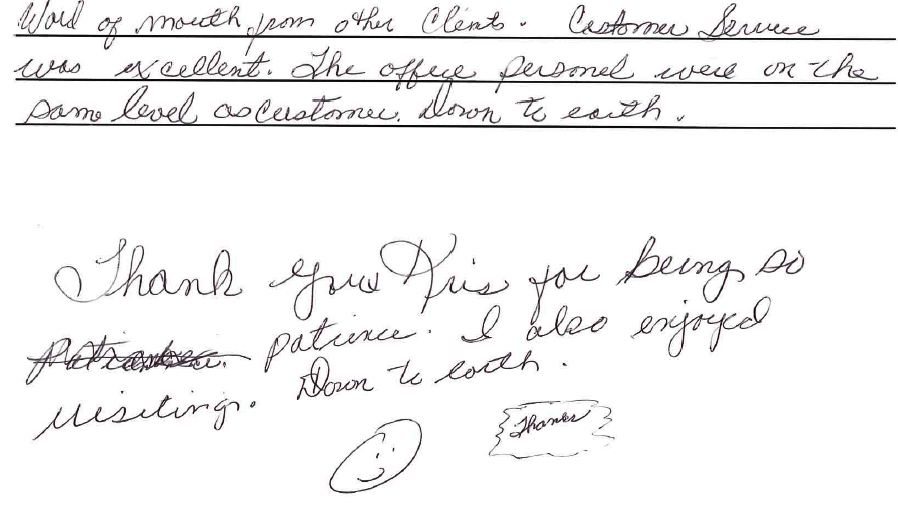 Word of mouth from other Clients. Customer Service
was excellent. The office personel were on the
same level as customer. Down to earth.
Thank you Kris for being so
patience. I also enjoyed
visiting. Down to earth.
Thanks